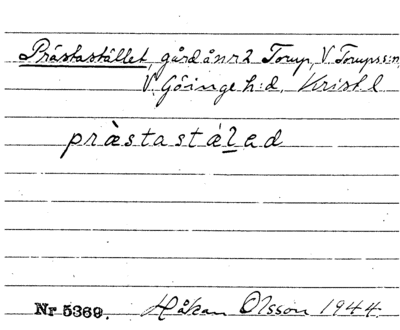 Prästastället, gård å nr 2 Torup, V. Torups s:n,
V. Göinge h:d, Krist l
præstastálad
Nr 5369. Håkan Olsson 1944.